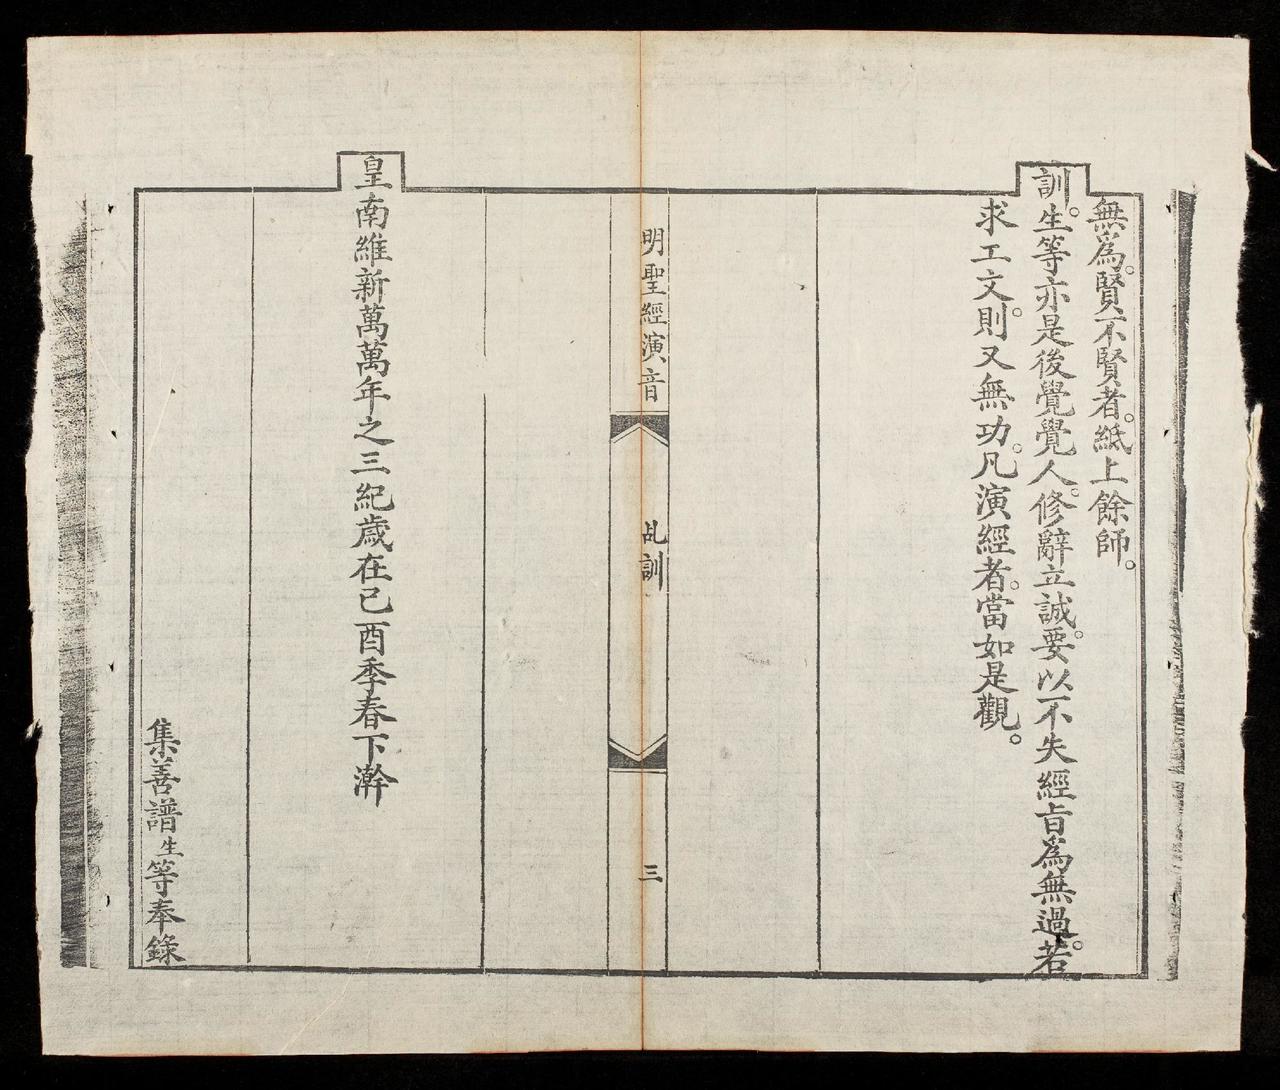 無爲。賢不賢者。紙上餘師。
訓。生等亦是後覺覺人。修辭立誠。要以不失經旨爲無過。若
求工文。則又無功。凡演經者。當如是觀。
明聖經演音
乩訓
三
皇南維新萬萬年之三紀歲在己酉季春下澣
集善譜生等奉錄